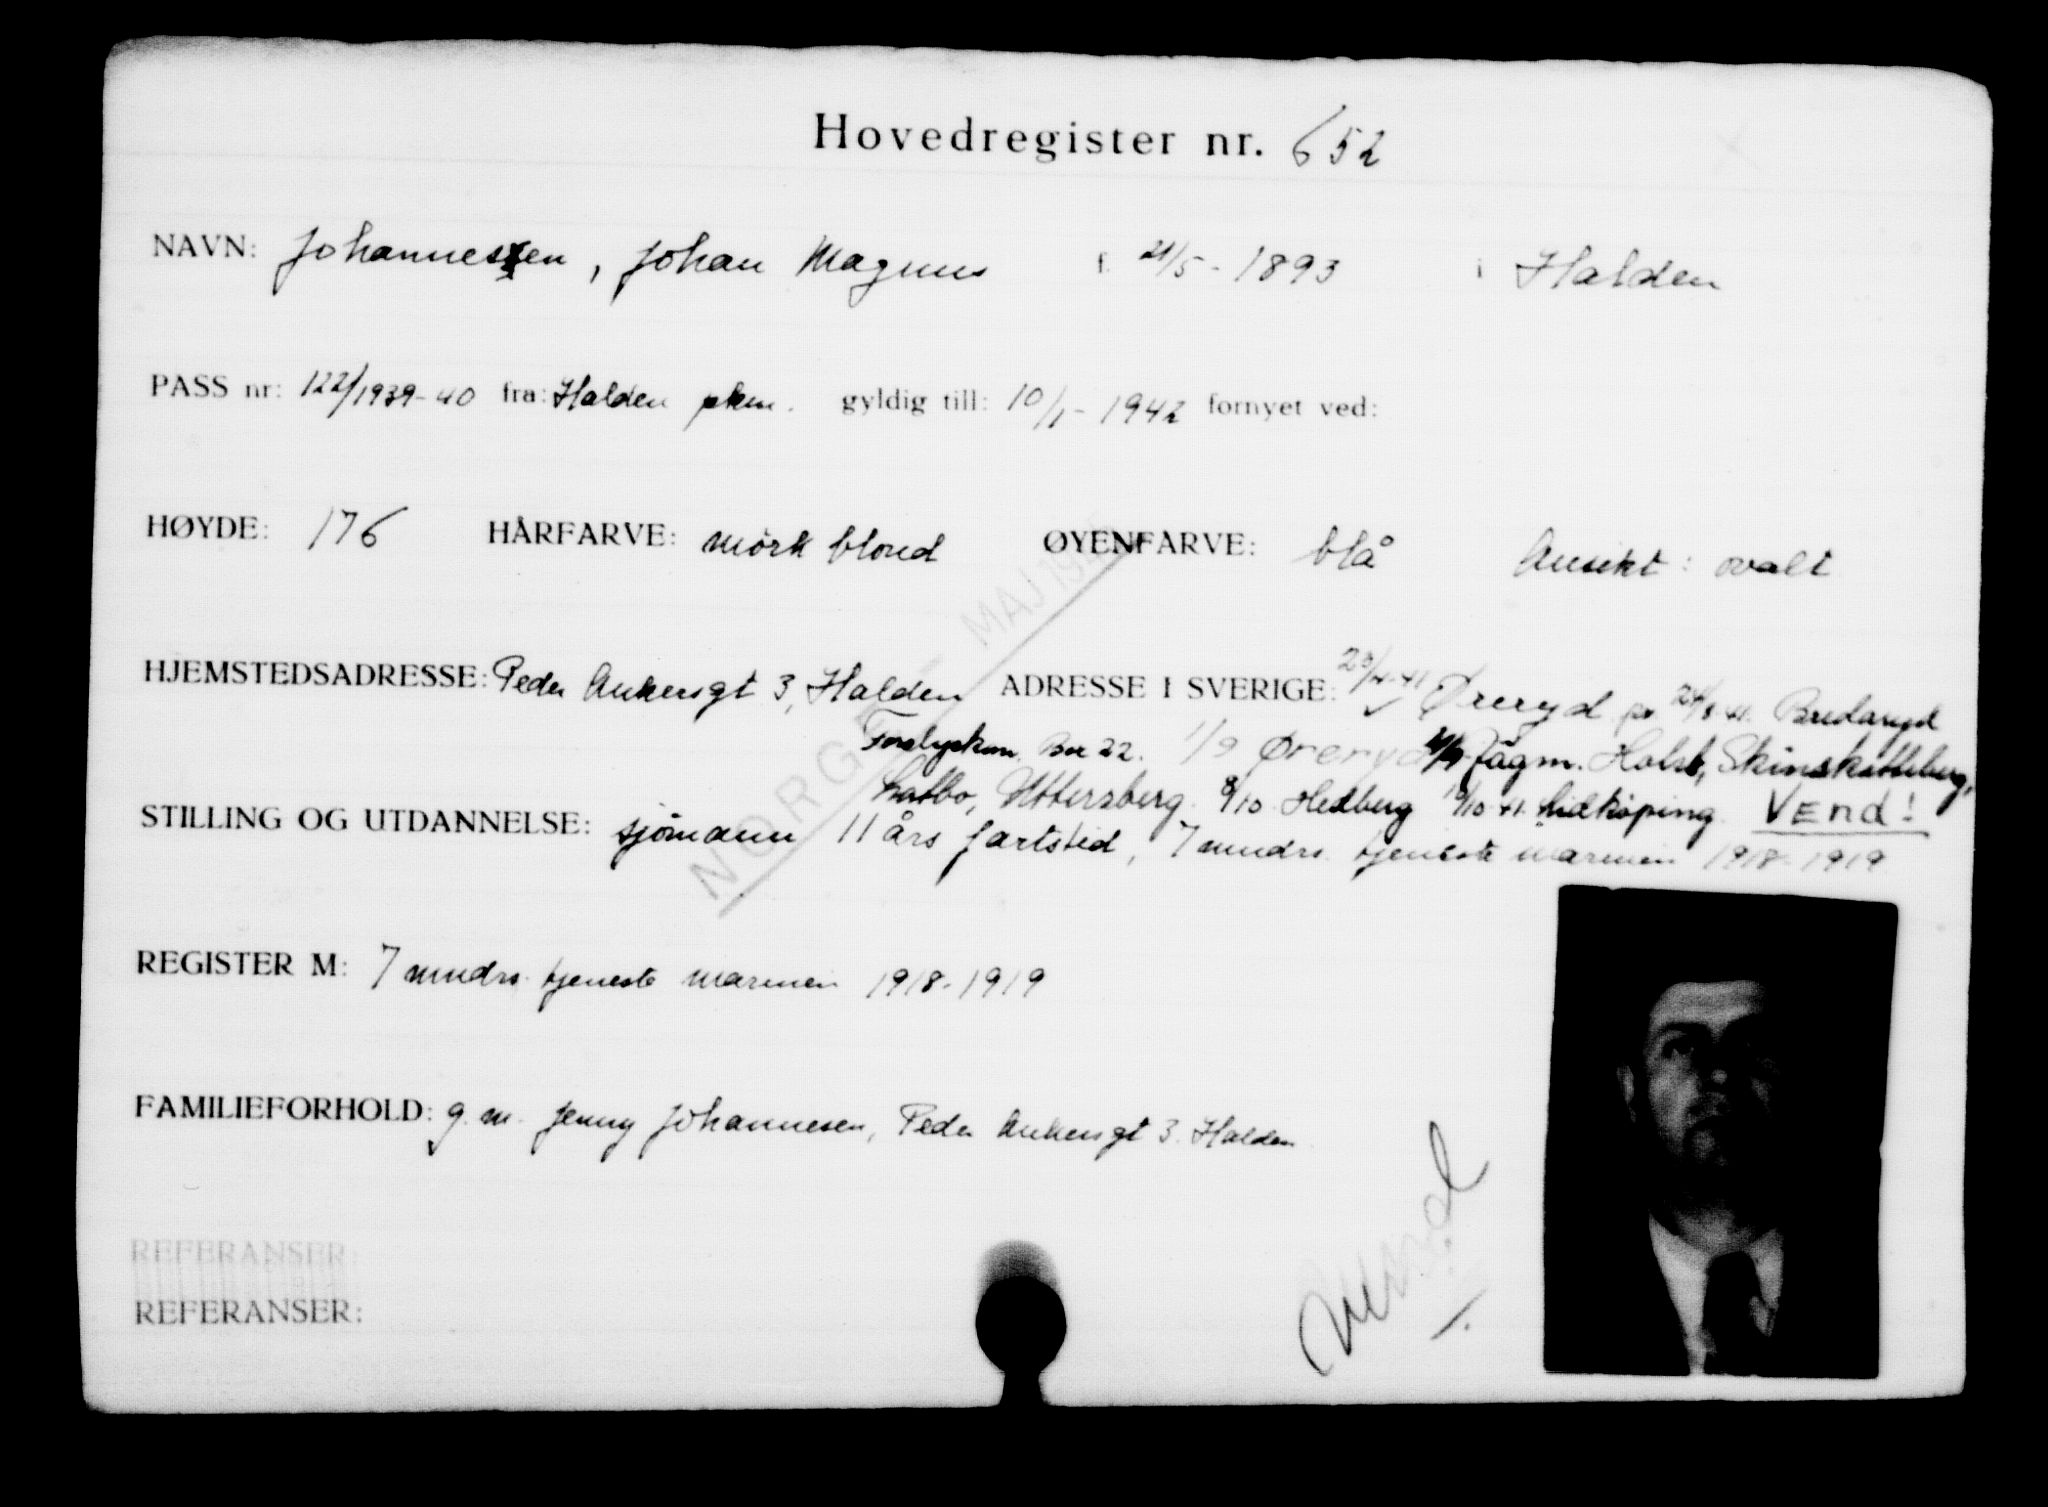 Hovedregister nr. 652
NAVN: Johannesen, Johan Magnus f. 21/5 - 1893 i Halden
PASS nr: 122/1939-40 fra: Halden pkm. gyldig till: 10/1 - 1942 fornyet ved:
HØYDE: 176 HÅRFARVE: mörk blond ØYENFARVE: blå Ansikt: ovalt
HJEMSTEDSADRESSE: Peder Ankersgt 3, Halden ADRESSE I SVERIGE: Øreryd pr. Bredaryd
Box 22. 1/9 Øreryd Jägm. Holst, Skinskatteberg,
Uttersberg. 8/10 Hedberg Lidköping. VEnd!
STILLING OG UTDANNELSE: sjömann 11 års fartstid, 7 mndrs. tjeneste marinen 1918-1919
NORGE MAJ 194
REGISTER M: 7 mndrs. tjeneste marinen 1918-1919
FAMILIEFORHOLD: g. m. Jenny Johannesen, Peder Ankersgt 3. Halden
REFERANSER:
REFERANSER: